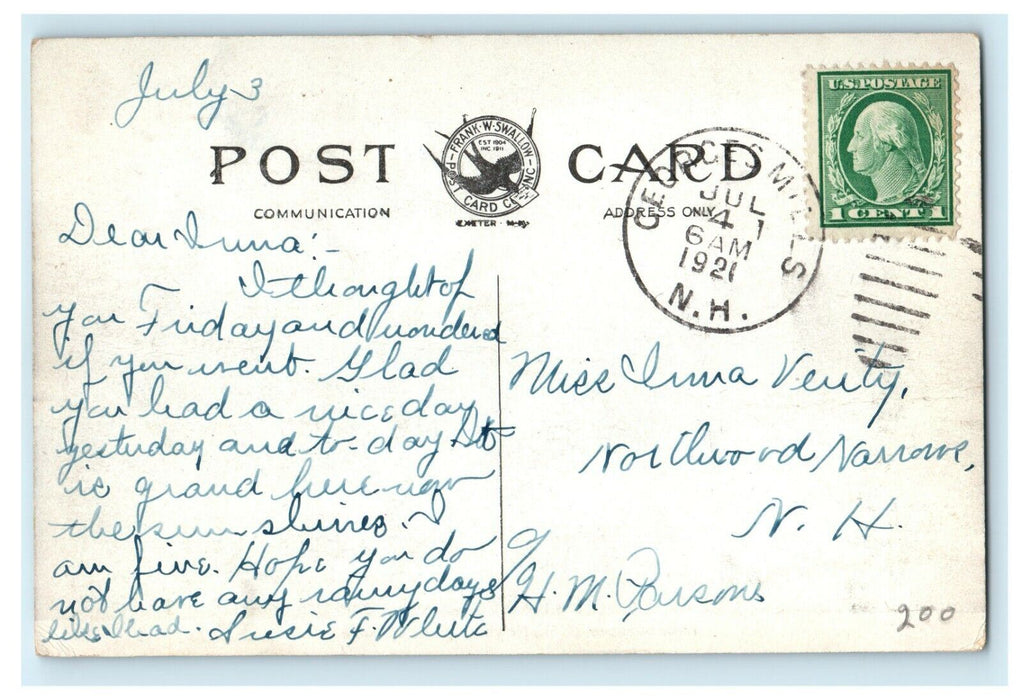 July 3
POST CARD
FRANK·W·SWALLOW
EST 1904
INC 1911
POST CARD CO. INC.
EXETER - N.H.
COMMUNICATION
ADDRESS ONLY
U.S. POSTAGE
1 CENT 1
GEORGES MILLS
JUL
4
6 AM
1921
N.H.
Dear Irma:-
I thought of
you Friday and wondered
if you went. Glad
you had a nice day
yesterday and to-day It
is grand here now
the sun shines. I
am fine. Hope you do
not have any rainy days
like I had. Susie F. White
Miss Irma Verity,
Northwood Narrows,
N. H.
H. M. Parsons
200